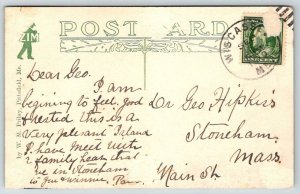 ZIM
POST CARD
WISCASSET
ONE CENT
Dear Geo.
I am
begining to feel good
& rested this is a
very plesant Island
I have Meet with
a family hear that
live in Stoneham
Dr Geo Hipkiss
Stoneham
Mass
Main St